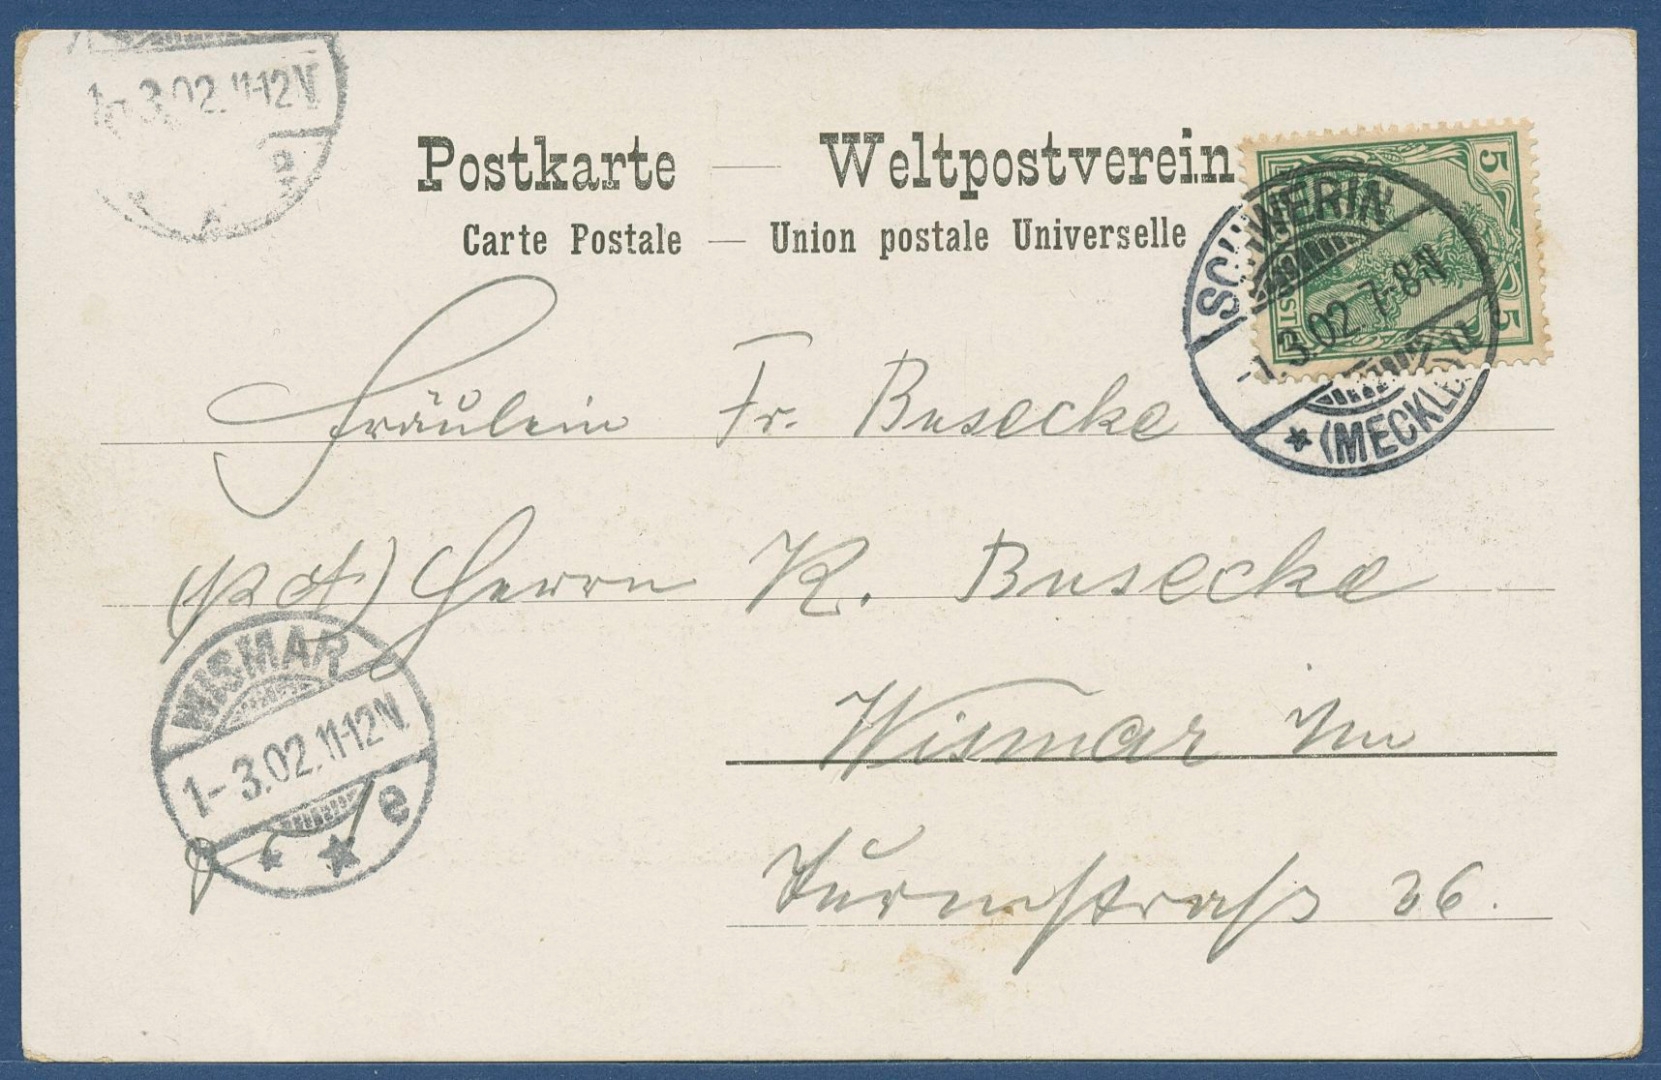 1-3.02.11-12N
e
Postkarte — Weltpostverein
Carte Postale — Union postale Universelle
5
5
SCHWERIN
-1.3.02.7-8N
(MECKLB) u
Fräulein Fr. Busecke
Herrn R. Busecke
WISMAR
1-3.02.11-12N.
e
Wismar i/m
Turmstraße 26.